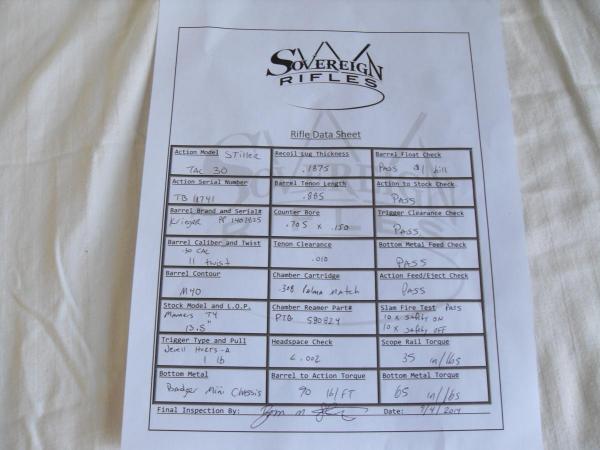 SOVEREIGN
RIFLES
Rifle Data Sheet
Action Model Stiller
TAC 30
Recoil Lug Thickness
.1875
Barrel Float Check
Pass $1 bill
Action Serial Number
TB
Barrel Tenon Length
.885
Action to Stock Check
Pass
Barrel Brand and Serial#
Krieger
Counter Bore
.705 x .150
Trigger Clearance Check
Pass
Barrel Caliber and Twist
30 CAL
11 twist
Tenon Clearance
.010
Bottom Metal Feed Check
Pass
Barrel Contour
M40
Chamber Cartridge
.308 Palma Match
Action Feed/Eject Check
Pass
Stock Model and L.O.P.
Manners T4
13.5"
Chamber Reamer Part#
PTG
Slam Fire Test Pass
10 x Safety ON
10 x Safety OFF
Trigger Type and Pull
Jewell
1 lb
Headspace Check
<.002
Scope Rail Torque
35 in/lbs
Bottom Metal
Badger Mini Chassis
Barrel to Action Torque
90 lb/FT
Bottom Metal Torque
65 in/lbs
Final Inspection By:
Date: 9/4/2014